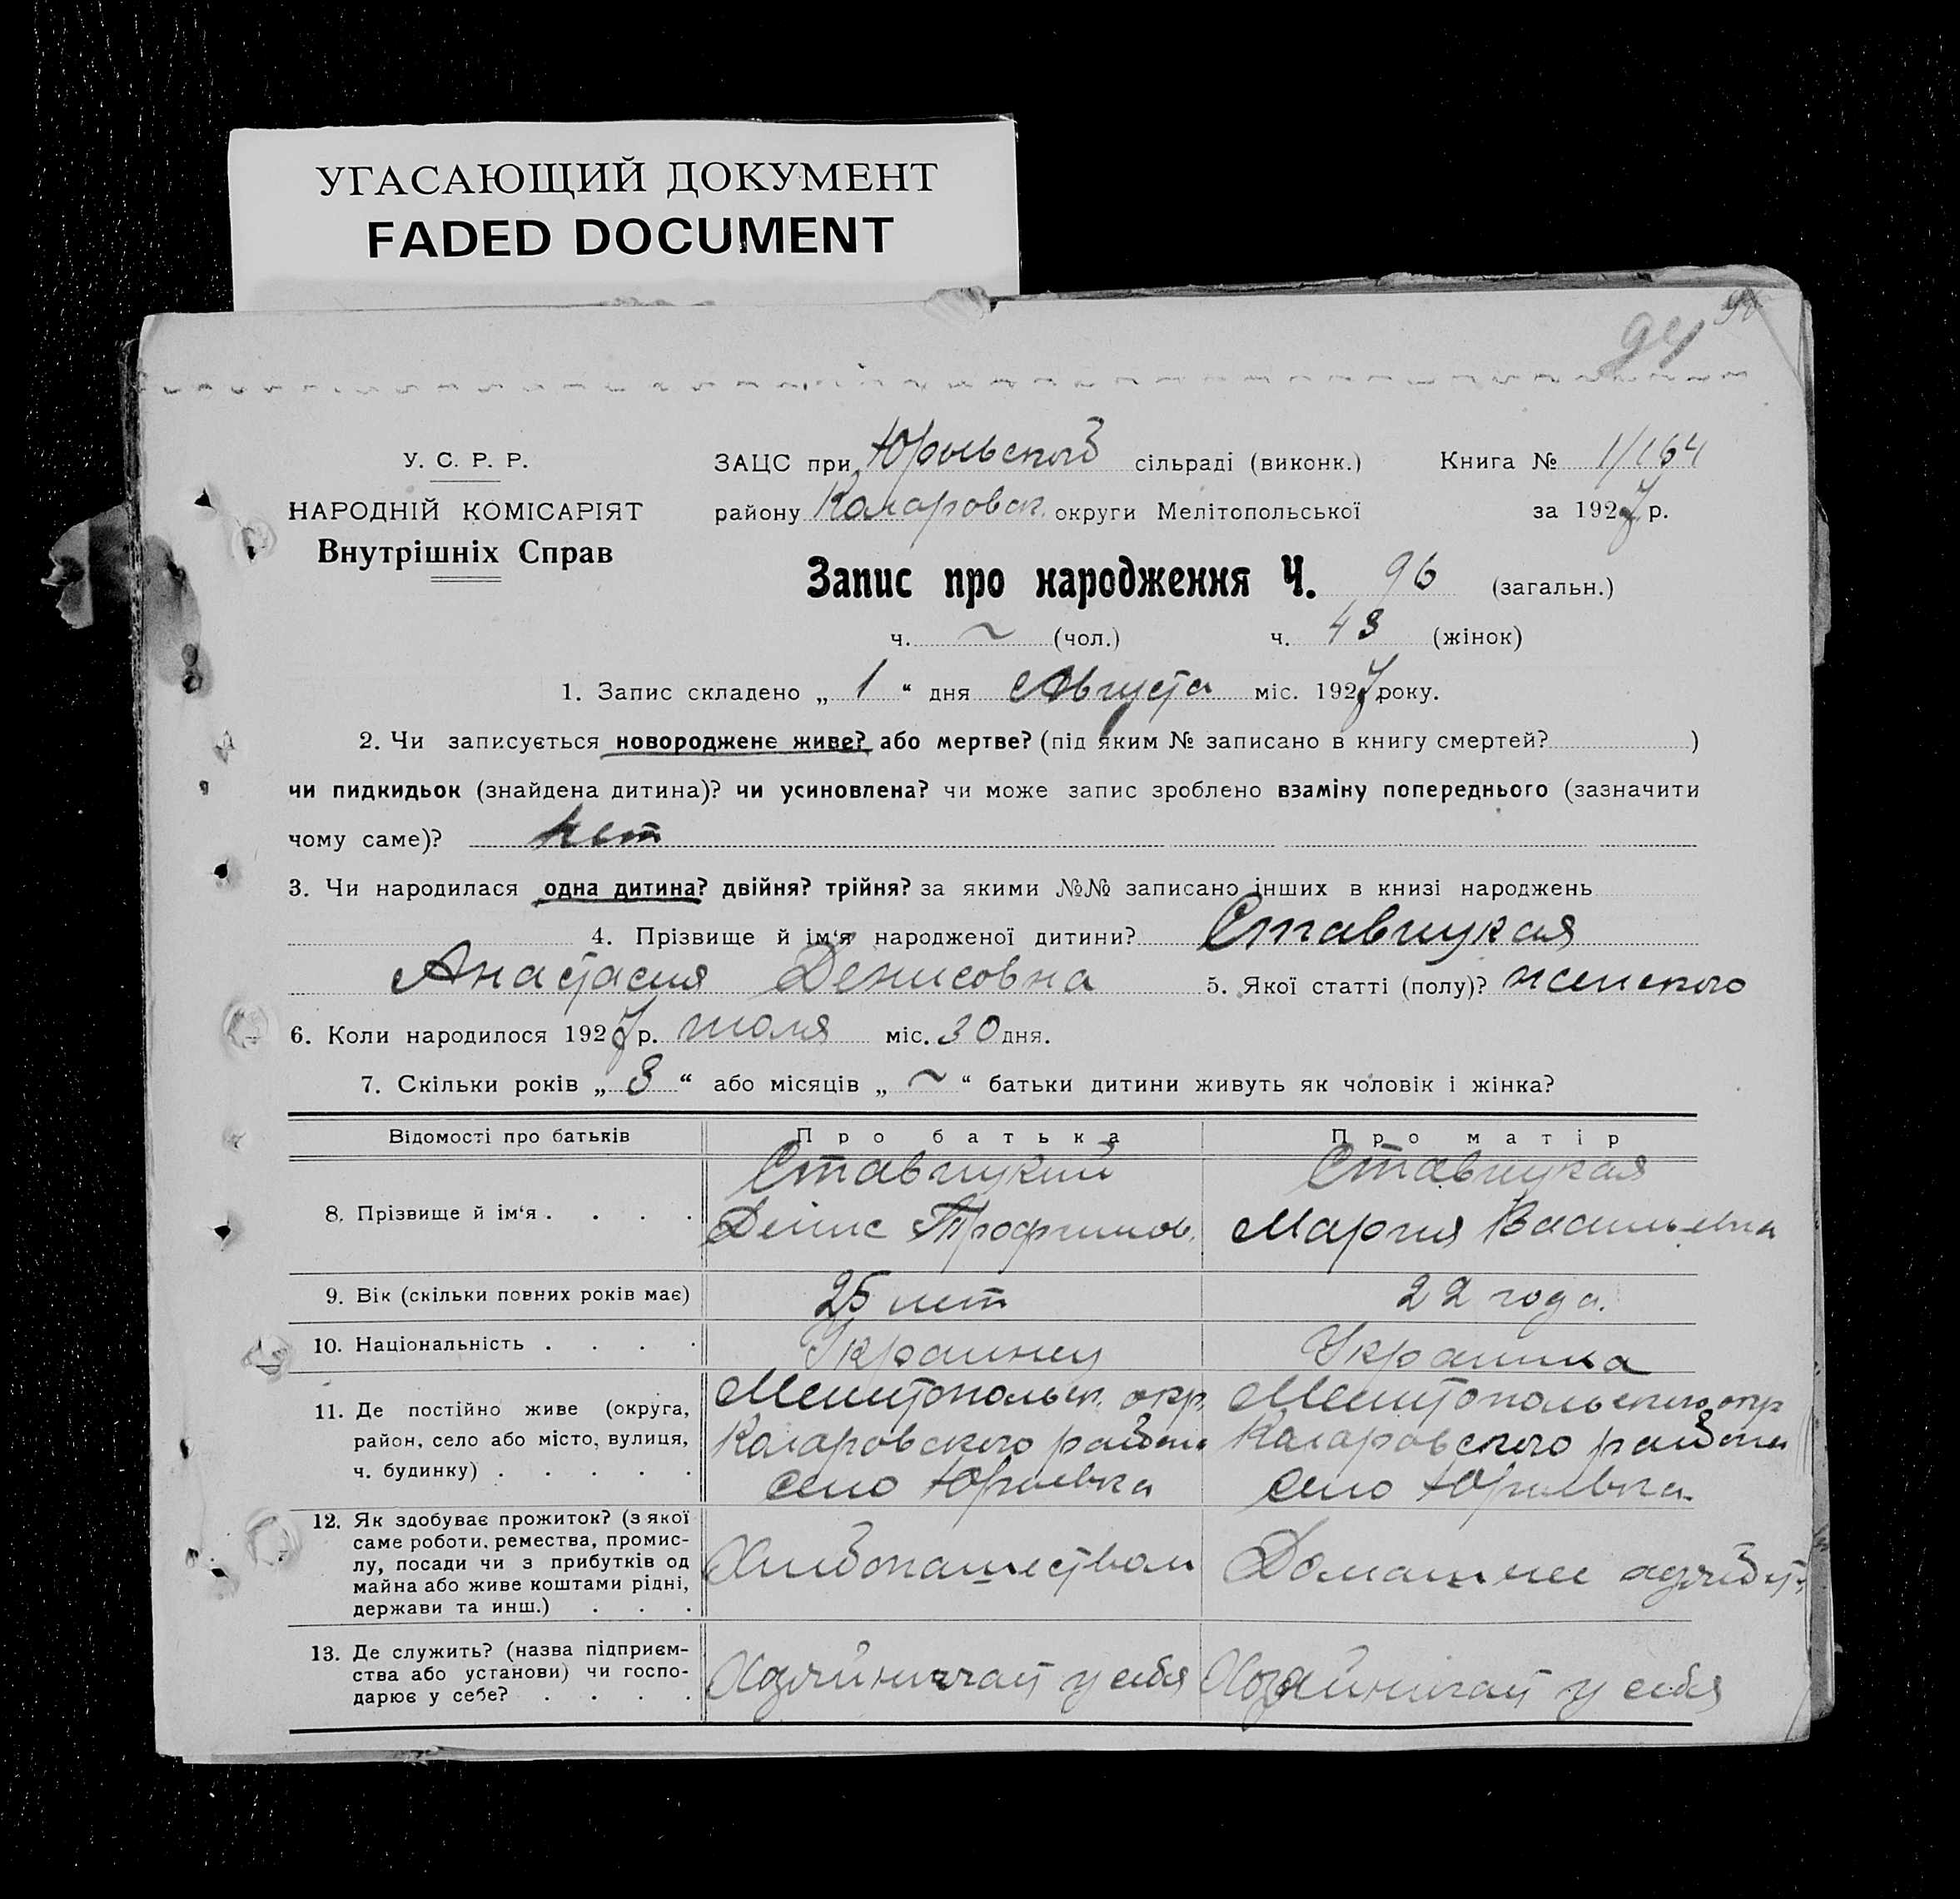 УГАСАЮЩИЙ ДОКУМЕНТ
FADED DOCUMENT
94 90
У. С. Р. Р.
НАРОДНІЙ КОМІСАРІЯТ
Внутрішніх Справ
ЗАЦС при Юрьевской сільраді (виконк.) Книга № 1/164
району Коларовск. округи Мелітопольської за 1927 р.
Запис про народження Ч. 96 (загальн.)
ч. ~ (чол.) ч. 43 (жінок)
1. Запис складено „ 1 “ дня Августа міс. 1927 року.
2. Чи записується новороджене живе? або мертве? (під яким № записано в книгу смертей? )
чи пидкидьок (знайдена дитина)? чи усиновлена? чи може запис зроблено взаміну попереднього (зазначити
чому саме)? нет
3. Чи народилася одна дитина? двійня? трійня? за якими №№ записано інших в книзі народжень
4. Прізвище й ім‘я народженої дитини? Ставицкая
Анастасия Денисовна 5. Якої статті (полу)? женского
6. Коли народилося 1927 р. июля міс. 30 дня.
7. Скільки років „ 3 “ або місяців „ ~ “ батьки дитини живуть як чоловік і жінка?
Відомості про батьків Про батька Про матір
8. Прізвище й ім‘я . . . . Ставицкий Ставицкая
Денис Трофимов. Мария Васильевна
9. Вік (скільки повних років має) 25 лет 22 года.
10. Національність . . . . Украинец Украинка
11. Де постійно живе (округа, Мелитопольск. окр. Мелитопольского окр
район, село або місто, вулиця, Коларовского района Коларовского района
ч. будинку) . . . . . село Юрьевка село Юрьевка.
12. Як здобуває прожиток? (з якої
саме роботи, ремества, промис-
лу, посади чи з прибутків од Хлебопашеством Домашнее
майна або живе коштами рідні,
держави та инш.) . . .
13. Де служить? (назва підприєм-
ства або установи) чи госпо- Хозяйничает у себя Хозяйничает у себя
дарює у себе? . . . .